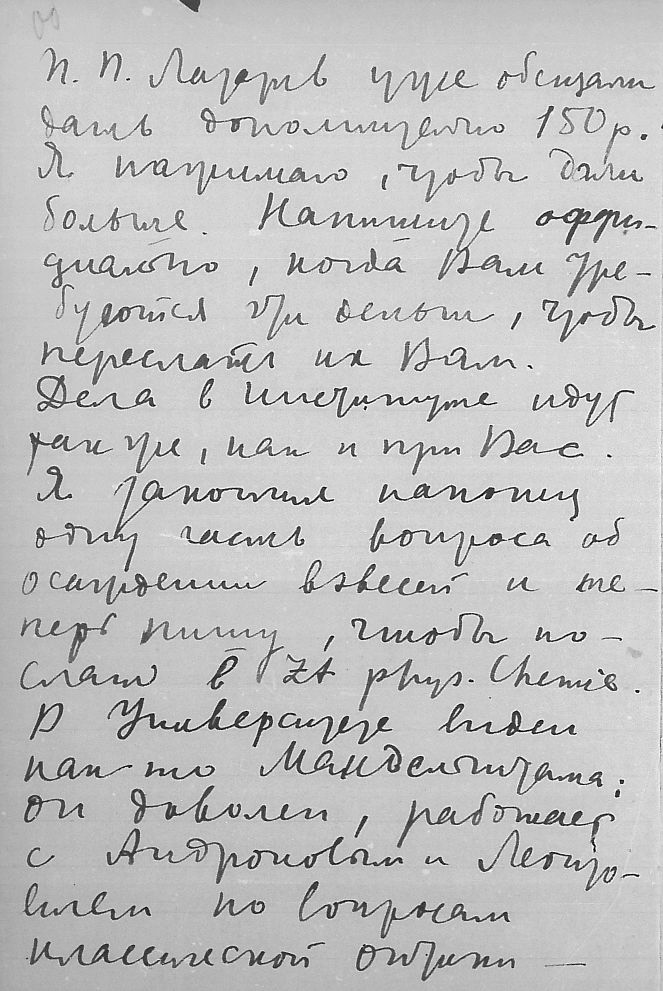 П. П. Лазарев уже обещали
дать дополнительно 150 р.
Я нажимаю, чтобы дали
больше. Напишите оффи-
циально, когда Вам тре-
буются эти деньги, чтобы
переслать их Вам.
Дела в Институте идут
так же, как и при Вас.
Я закончил наконец
одну часть вопроса об
осаждении взвесей и те-
перь пишу, чтобы по-
слать в Zt phys. Chemie.
В Университете видел
как-то Мандельштама;
он доволен, работает
с Андроновым и Леонто-
вичем по вопросам
классической оптики —